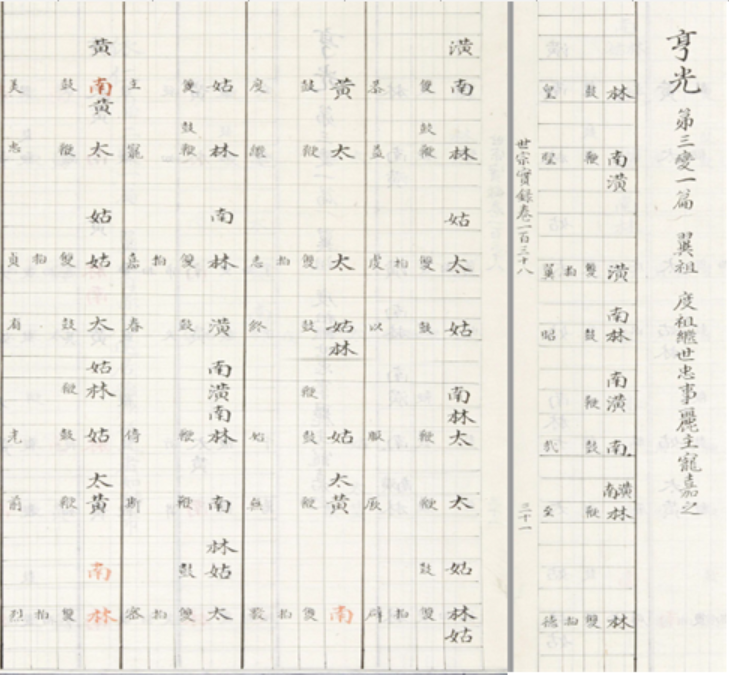 亨光 第三變一篇 翼祖 度祖繼世忠事麗主寵嘉之
林南潢潢南林南潢南南潢林林
鼓鞭雙鼓鞭鼓鞭雙
拍拍
皇聖翼昭我至德
世宗實錄卷一百三十八 三十一
潢南林姑太姑南林太太姑林姑
雙鼓鞭雙鼓鞭鞭鼓雙
拍拍
恭益虔以服厥辟
黃太太姑林姑太黃南
鼓鞭雙鼓鞭鼓鞭雙
拍拍
度繼志終始無斁
姑林南林潢南潢南林南林姑太
雙鼓鞭雙鼓鞭鞭鼓雙
拍拍
主寵嘉眷倚斯密
黃南黃太姑姑太姑林姑太黃南林
鼓鞭雙鼓鞭鼓鞭雙
拍拍
美忠貞有光前烈